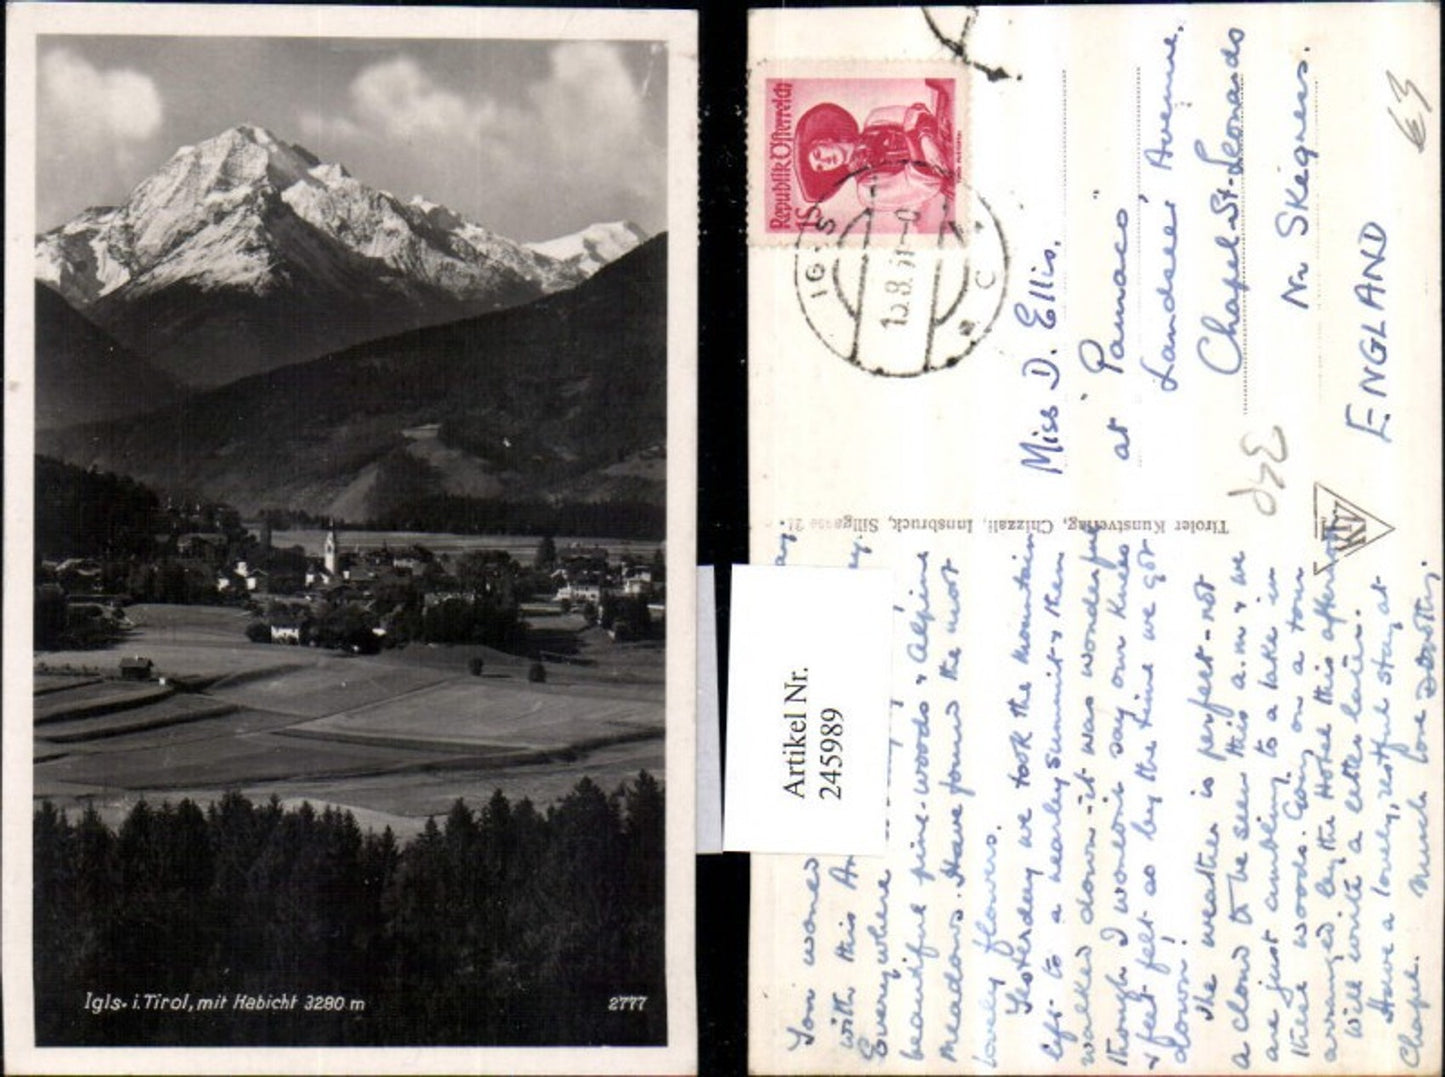 Igls. i. Tirol, mit Habicht 3280 m
2777
Artikel Nr.
245989
Republik Österreich
1S
IGLS
15.8.51
C
Miss D. Ellis.
at "Pamaco"
Landseer Avenue.
Chapel-St-Leonards
Nr Skegness.
ENGLAND
63
Tiroler Kunstverlag, Chizzali, Innsbruck, Sillgasse 21.
You
with this
Everywhere
beautiful pine-woods & alpine
meadows. Have found the most
lovely flowers.
Yesterday we took the mountain
lift to a nearby summit & then
walked down - it was wonderful
though I won't say our knees
& feet felt so by the time we got
down!
The weather is perfect - not
a cloud to be seen this a.m & we
are just ambling to a lake in
these woods. Going on a tour
arranged by the Hotel this afternoon
Will write a letter later.
Have a lovely, restful stay at
Chapel. Much love Dorothy.